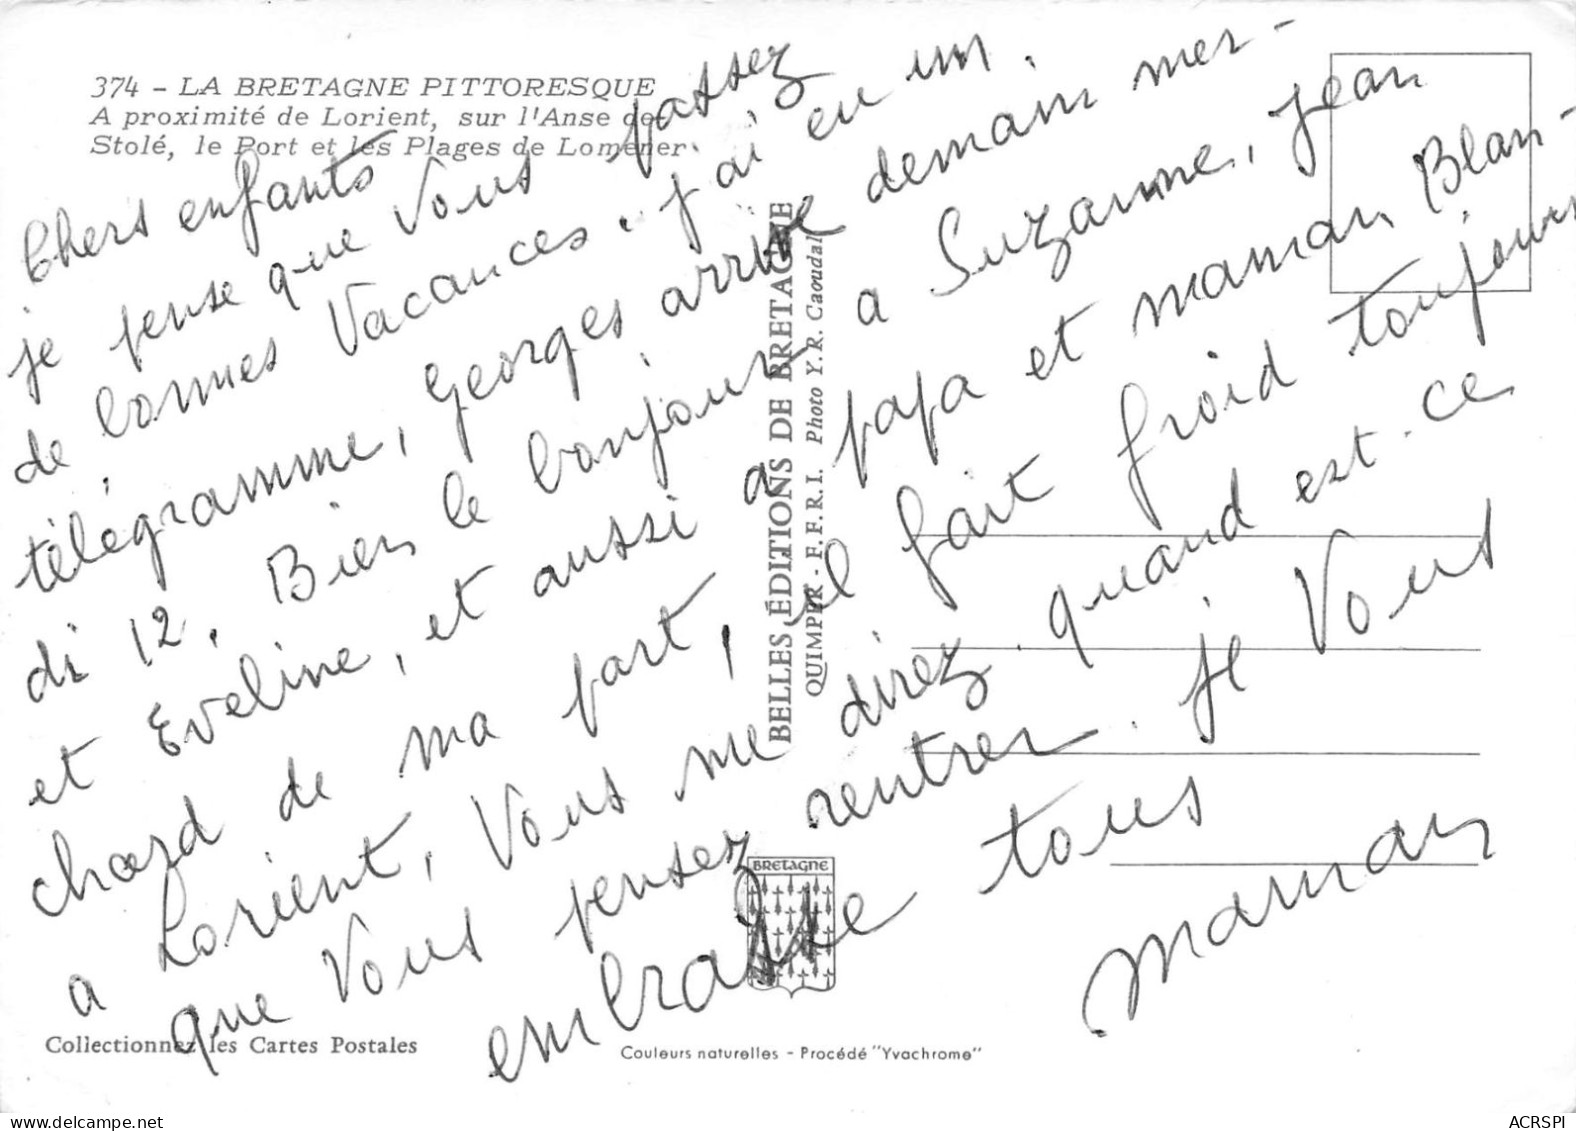 374 - LA BRETAGNE PITTORESQUE
A proximité de Lorient, sur l'Anse de
Stolé, le Port et les Plages de Lomener
Chers enfants
je pense que Vous passez
de bonnes Vacances. j'ai eu un
télégramme, Georges arrive demain mer-
di 12. Bien le bonjour a Suzanne, Jean
et Eveline, et aussi a papa et maman Blan-
chard de ma part, il fait froid toujours
a Lorient, Vous me direz quand est-ce
que Vous pensez rentrer. je Vous
embrasse tous
maman
BELLES ÉDITIONS DE BRETAGNE
QUIMPER - F.F.R.I. Photo Y.R. Caoudal
BRETAGNE
Collectionnez les Cartes Postales
Couleurs naturelles - Procédé "Yvachrome"
ACRSPI